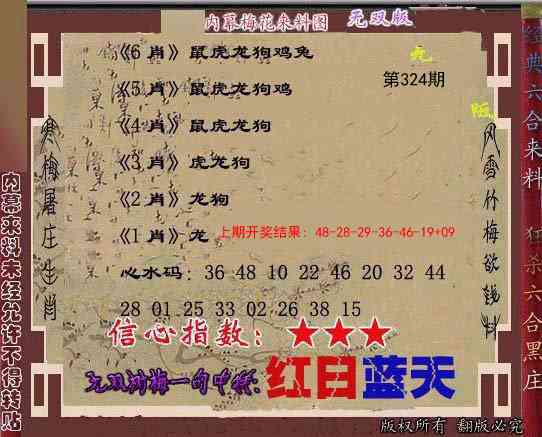 内幕梅花来料图 无双版
《6 肖》鼠虎龙狗鸡兔
无
第324期
《5 肖》鼠虎龙狗鸡
《4 肖》鼠虎龙狗
《3 肖》虎龙狗
《2 肖》龙狗
《1 肖》龙
上期开奖结果：48-28-29-36-46-19+09
心水码：36 48 10 22 46 20 32 44
28 01 25 33 02 26 38 15
信心指数：★★★
红日蓝天
版权所有 翻版必究
内幕来料未经允许不得转贴
寒梅屠庄生肖
风雪竹梅欲钱料
经典六合来料
狂杀六合黑庄